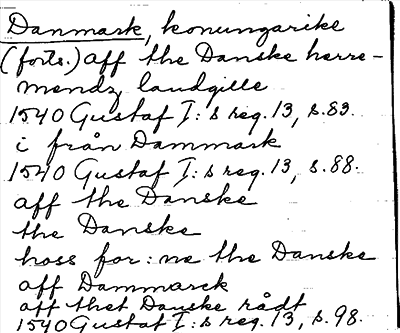 Danmark, konungarike
(forts.) aff the Danske herre-
mendz landgille
1540 Gustaf I:s reg. 13, s. 83.
i från Dammark
1540 Gustaf I:s reg. 13, s. 88.
aff the Danske
the Danske
hoss for:ne the Danske
aff Dammarck
aff thet Danske rådt
1540 Gustaf I:s reg. 13, s. 98.